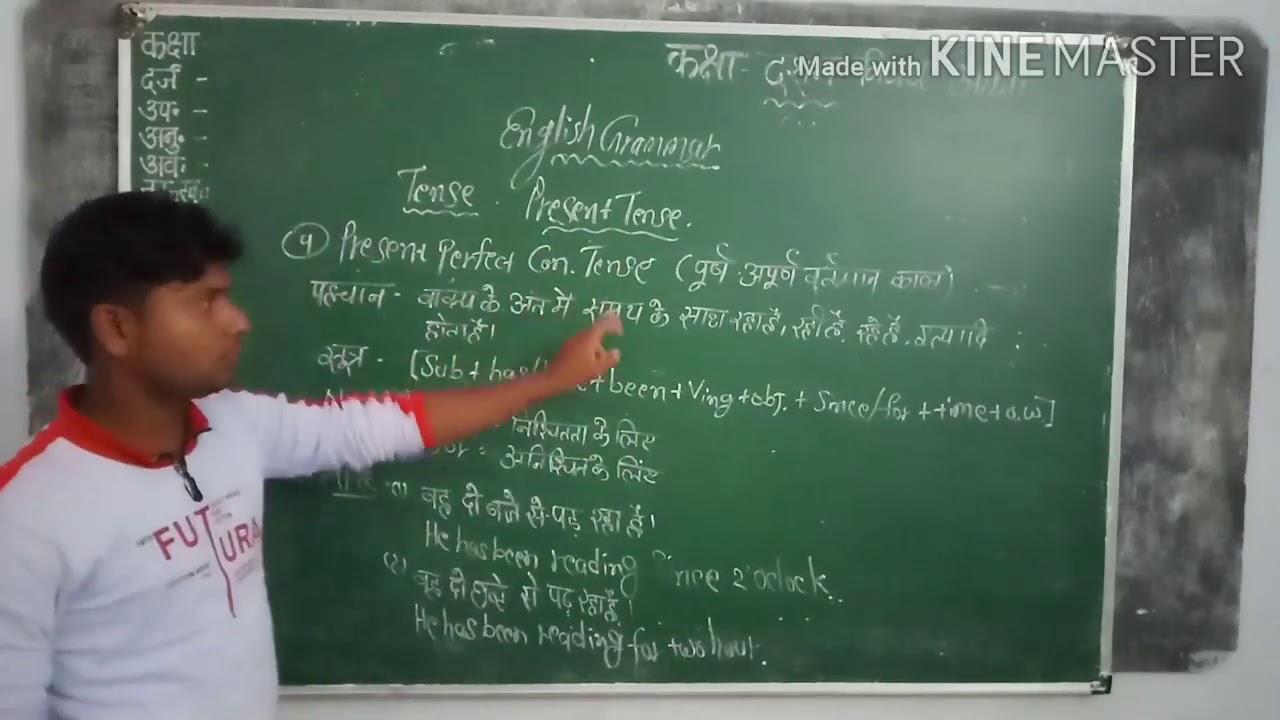 कक्षा
दर्ज -
उप॰ -
अनु॰ -
अव॰ -
कक्षा -
Made with KINEMASTER
English Grammar
Tense. Present Tense.
Present Perfect Con. Tense (पूर्ण अपूर्ण वर्तमान काल)
पहचान - वाक्य के अंत में समय के साथ रहा है, रही है, रहे हैं, इत्यादि
होता है।
सूत्र - [Sub + + been + Ving + obj. + Since/for + time + o.w]
निश्चितता के लिए
अनिश्चित के लिए
(1) वह दो बजे से पढ़ रहा है।
He has been reading Since 2'oclock.
(2) वह दो घण्टे से पढ़ रहा है।
He has been reading for two hour.
FUTURA